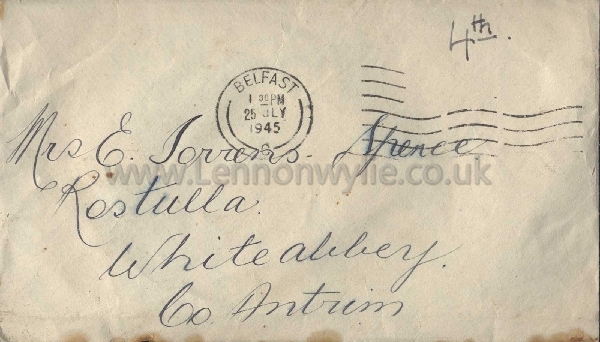 4th.
BELFAST
1 30 PM
25 JLY
1945
Mrs E. Torrens. Spence
www.Lennonwylie.co.uk
Rostulla.
Whiteabbey.
Co. Antrim